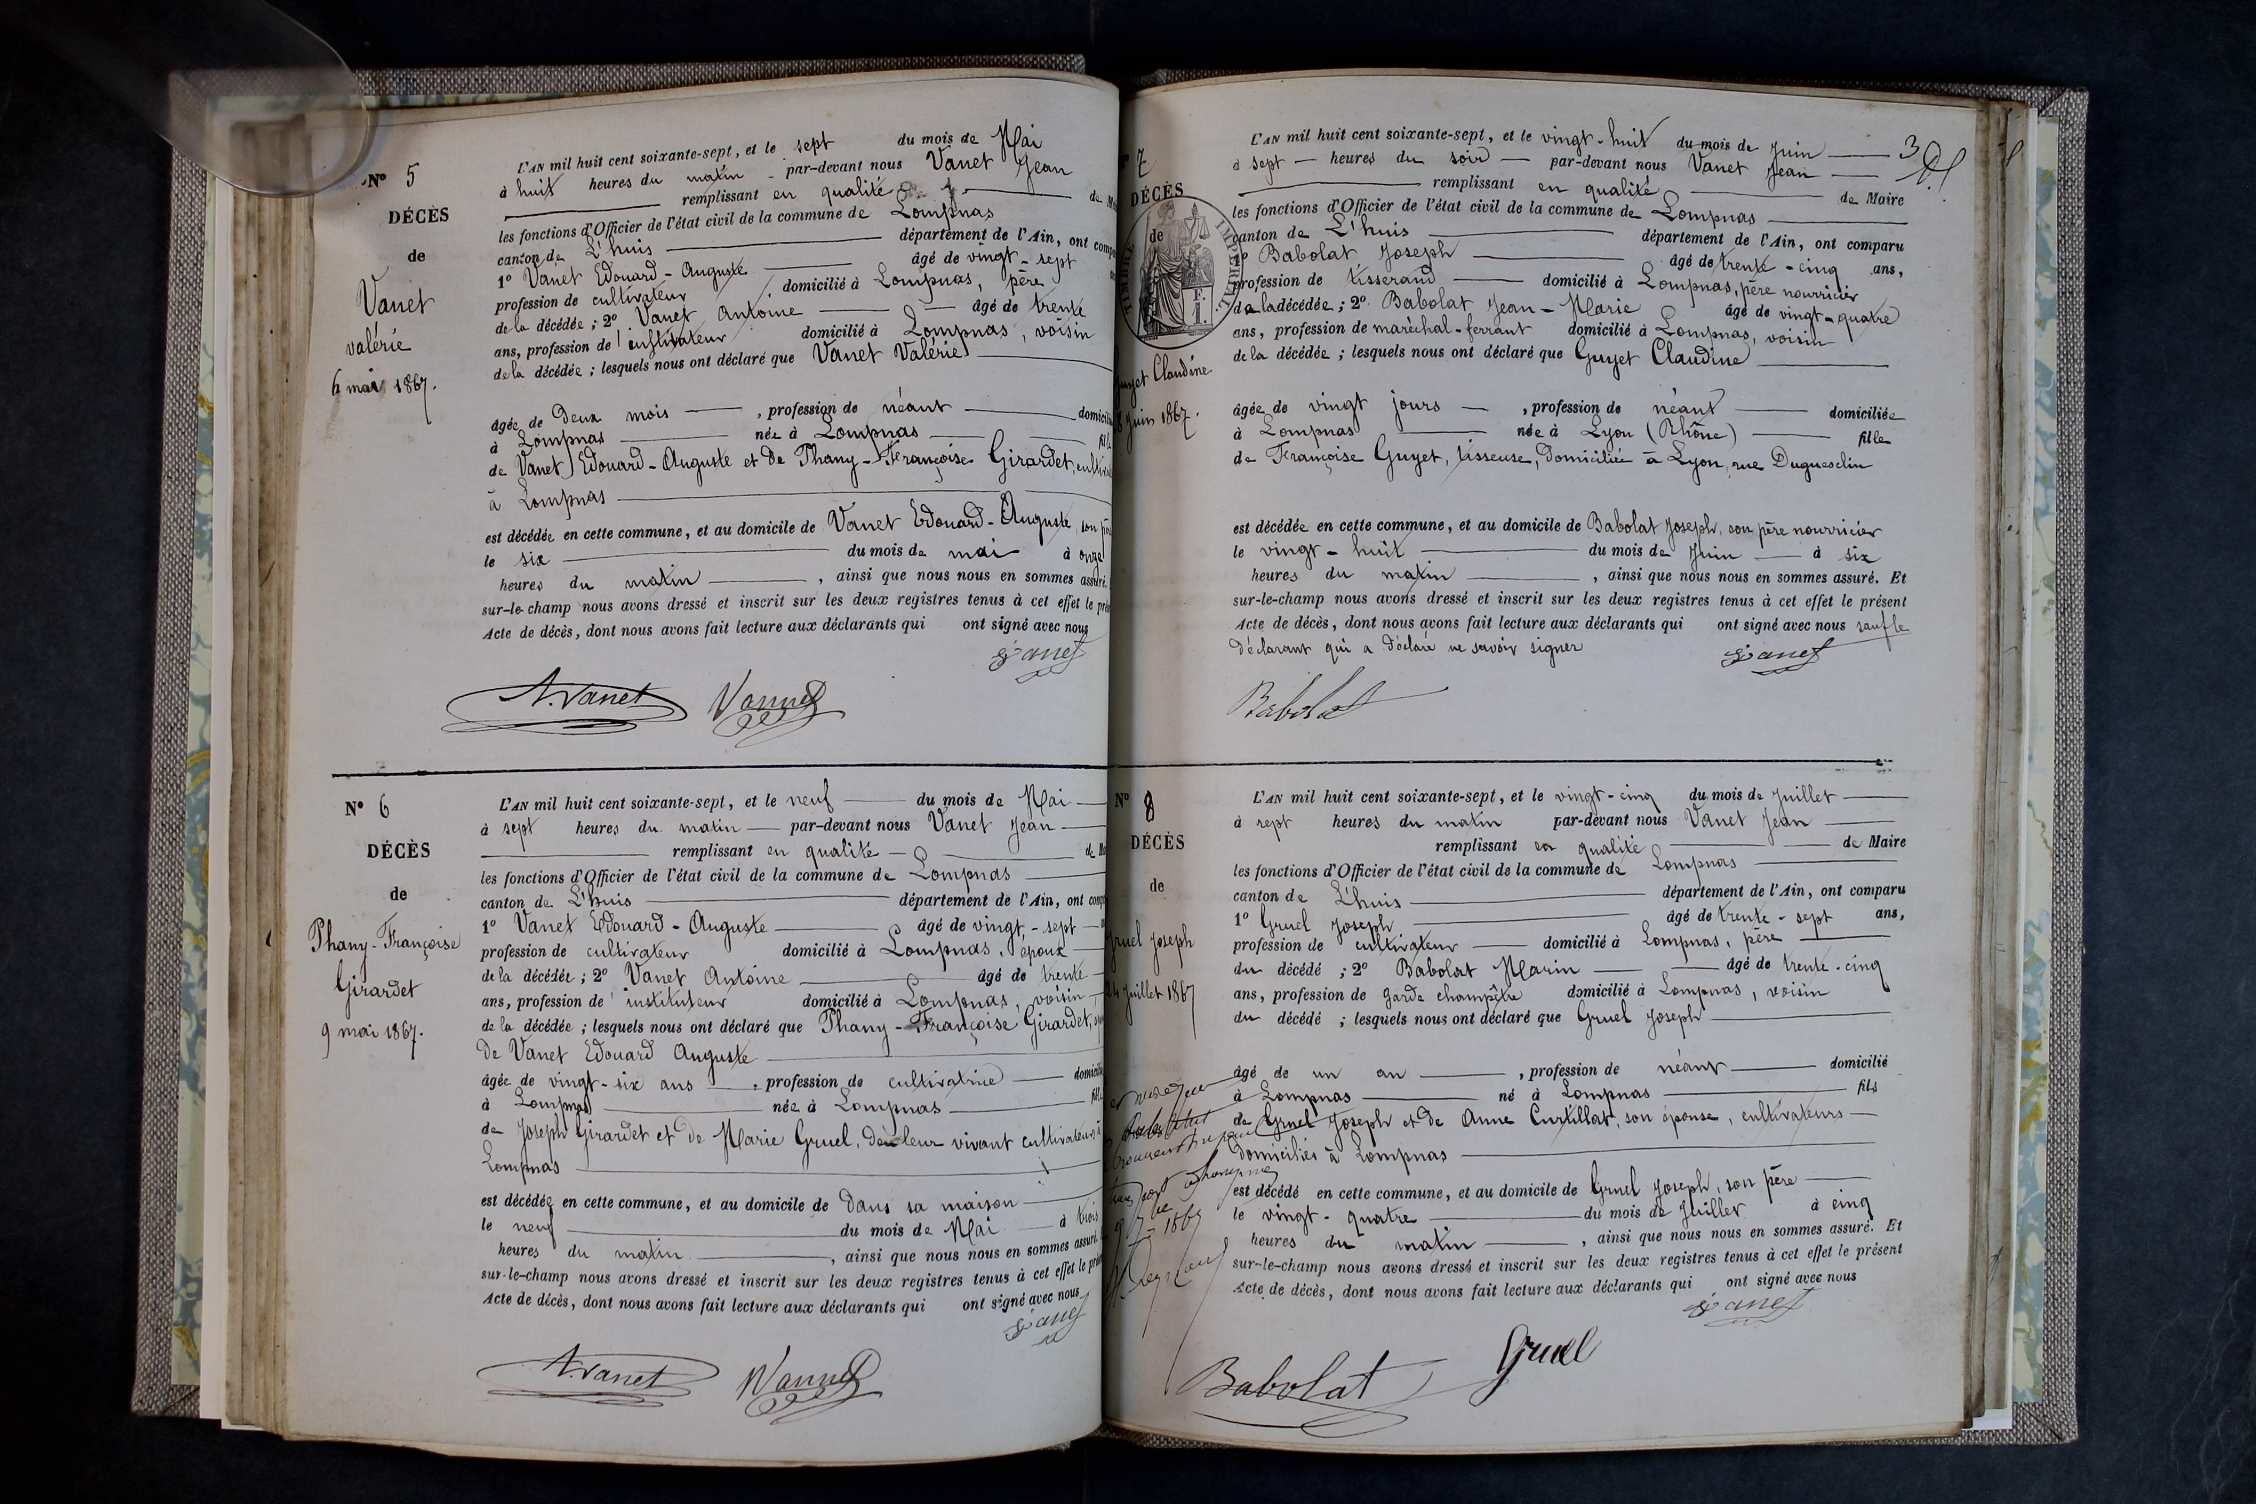 Nº 5
DÉCÈS
de
Vanet
valérie
6 mai 1867.
L'AN mil huit cent soixante-sept, et le sept du mois de Mai
à huit heures du matin par-devant nous Vanet Jean
remplissant en qualité de
les fonctions d'Officier de l'état civil de la commune de Lompnas
canton de L'huis département de l'Ain, ont
1º Vanet Edouard-Auguste âgé de vingt-sept
profession de cultivateur domicilié à Lompnas, père
de la décédée ; 2º Vanet Antoine âgé de trente
ans, profession de instituteur domicilié à Lompnas, voisin
de la décédée ; lesquels nous ont déclaré que Vanet Valérie
âgée de Deux mois , profession de néant
à Lompnas née à Lompnas
de Vanet Edouard-Auguste et de Phany-Françoise Girardet,
à Lompnas
est décédée en cette commune, et au domicile de Vanet Edouard-Auguste, son
le six du mois de mai à onze
heures du matin , ainsi que nous nous en sommes assuré.
sur-le-champ nous avons dressé et inscrit sur les deux registres tenus à cet effet le
Acte de décès, dont nous avons fait lecture aux déclarants qui ont signé avec nous
Vanet
A. Vanet Vannet
Nº 6
DÉCÈS
de
Phany-Françoise
Girardet
9 mai 1867.
L'AN mil huit cent soixante-sept, et le neuf du mois de Mai
à sept heures du matin par-devant nous Vanet Jean
remplissant en qualité de
les fonctions d'Officier de l'état civil de la commune de Lompnas
canton de L'huis département de l'Ain, ont
1º Vanet Edouard-Auguste âgé de vingt-sept
profession de cultivateur domicilié à Lompnas, époux
de la décédée ; 2º Vanet Antoine âgé de trente
ans, profession de instituteur domicilié à Lompnas, voisin
de la décédée ; lesquels nous ont déclaré que Phany-Françoise Girardet,
de Vanet Edouard Auguste
âgée de vingt-six ans , profession de cultivatrice
à Lompnas née à Lompnas
de Joseph Girardet et de Marie Gruel, de leur vivant cultivateurs à
Lompnas
est décédée en cette commune, et au domicile de dans sa maison
le neuf du mois de Mai à trois
heures du matin , ainsi que nous nous en sommes assuré.
sur-le-champ nous avons dressé et inscrit sur les deux registres tenus à cet effet le
Acte de décès, dont nous avons fait lecture aux déclarants qui ont signé avec nous
Vanet
A. Vanet Vannet
3
Nº 7
DÉCÈS
de
TIMBRE IMPÉRIAL
Guyet Claudine
Juin 1867.
L'AN mil huit cent soixante-sept, et le vingt-huit du mois de Juin
à sept heures du soir par-devant nous Vanet Jean
remplissant en qualité de Maire
les fonctions d'Officier de l'état civil de la commune de Lompnas
canton de L'huis département de l'Ain, ont comparu
1º Babolat Joseph âgé de trente-cinq ans,
profession de tisserand domicilié à Lompnas, père nourricier
de la décédée ; 2º Babolat Jean-Marie âgé de vingt-quatre
ans, profession de maréchal-ferrant domicilié à Lompnas, voisin
de la décédée ; lesquels nous ont déclaré que Guyet Claudine
âgée de vingt jours , profession de néant domiciliée
à Lompnas née à Lyon (Rhône) fille
de Françoise Guyet, tisseuse, domiciliée à Lyon, rue Duguesclin
est décédée en cette commune, et au domicile de Babolat Joseph, son père nourricier
le vingt-huit du mois de Juin à six
heures du matin , ainsi que nous nous en sommes assuré. Et
sur-le-champ nous avons dressé et inscrit sur les deux registres tenus à cet effet le présent
Acte de décès, dont nous avons fait lecture aux déclarants qui ont signé avec nous sauf le
déclarant qui a déclaré ne savoir signer
Vanet
Babolat
Nº 8
DÉCÈS
de
Gruel Joseph
24 Juillet 1867
L'AN mil huit cent soixante-sept, et le vingt-cinq du mois de Juillet
à sept heures du matin par-devant nous Vanet Jean
remplissant en qualité de Maire
les fonctions d'Officier de l'état civil de la commune de Lompnas
canton de L'huis département de l'Ain, ont comparu
1º Gruel Joseph âgé de trente-sept ans,
profession de cultivateur domicilié à Lompnas, père
du décédé ; 2º Babolat Marin âgé de trente-cinq
ans, profession de garde champêtre domicilié à Lompnas, voisin
du décédé ; lesquels nous ont déclaré que Gruel Joseph
âgé de un an , profession de néant domicilié
à Lompnas né à Lompnas fils
de Gruel Joseph et de Anne Curtillat, son épouse, cultivateurs
domiciliés à Lompnas
est décédé en cette commune, et au domicile de Gruel Joseph, son père
le vingt-quatre du mois de Juillet à cinq
heures du matin , ainsi que nous nous en sommes assuré. Et
sur-le-champ nous avons dressé et inscrit sur les deux registres tenus à cet effet le présent
Acte de décès, dont nous avons fait lecture aux déclarants qui ont signé avec nous
Vanet
Babolat Gruel